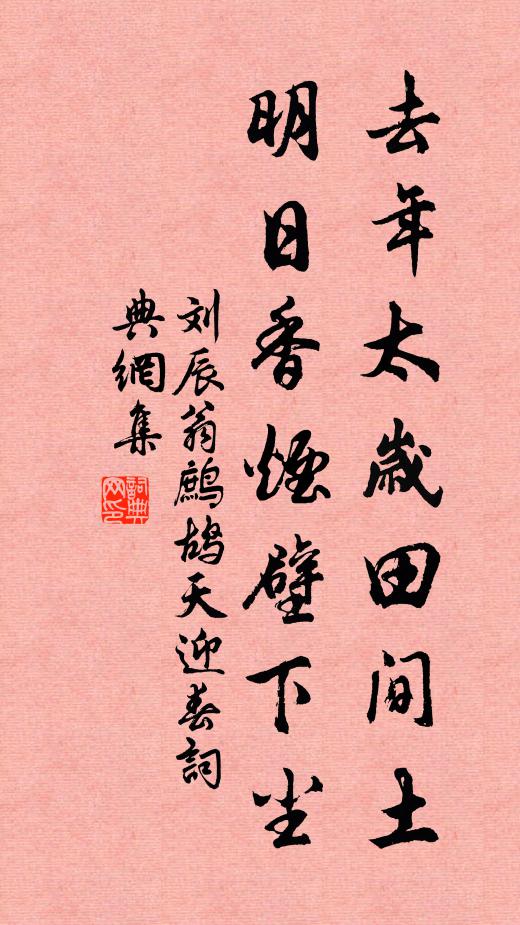 去年太歲田间土
明日香煙壁下尘
刘辰翁鷓鴣天迎春詞
典網集
詞典网印